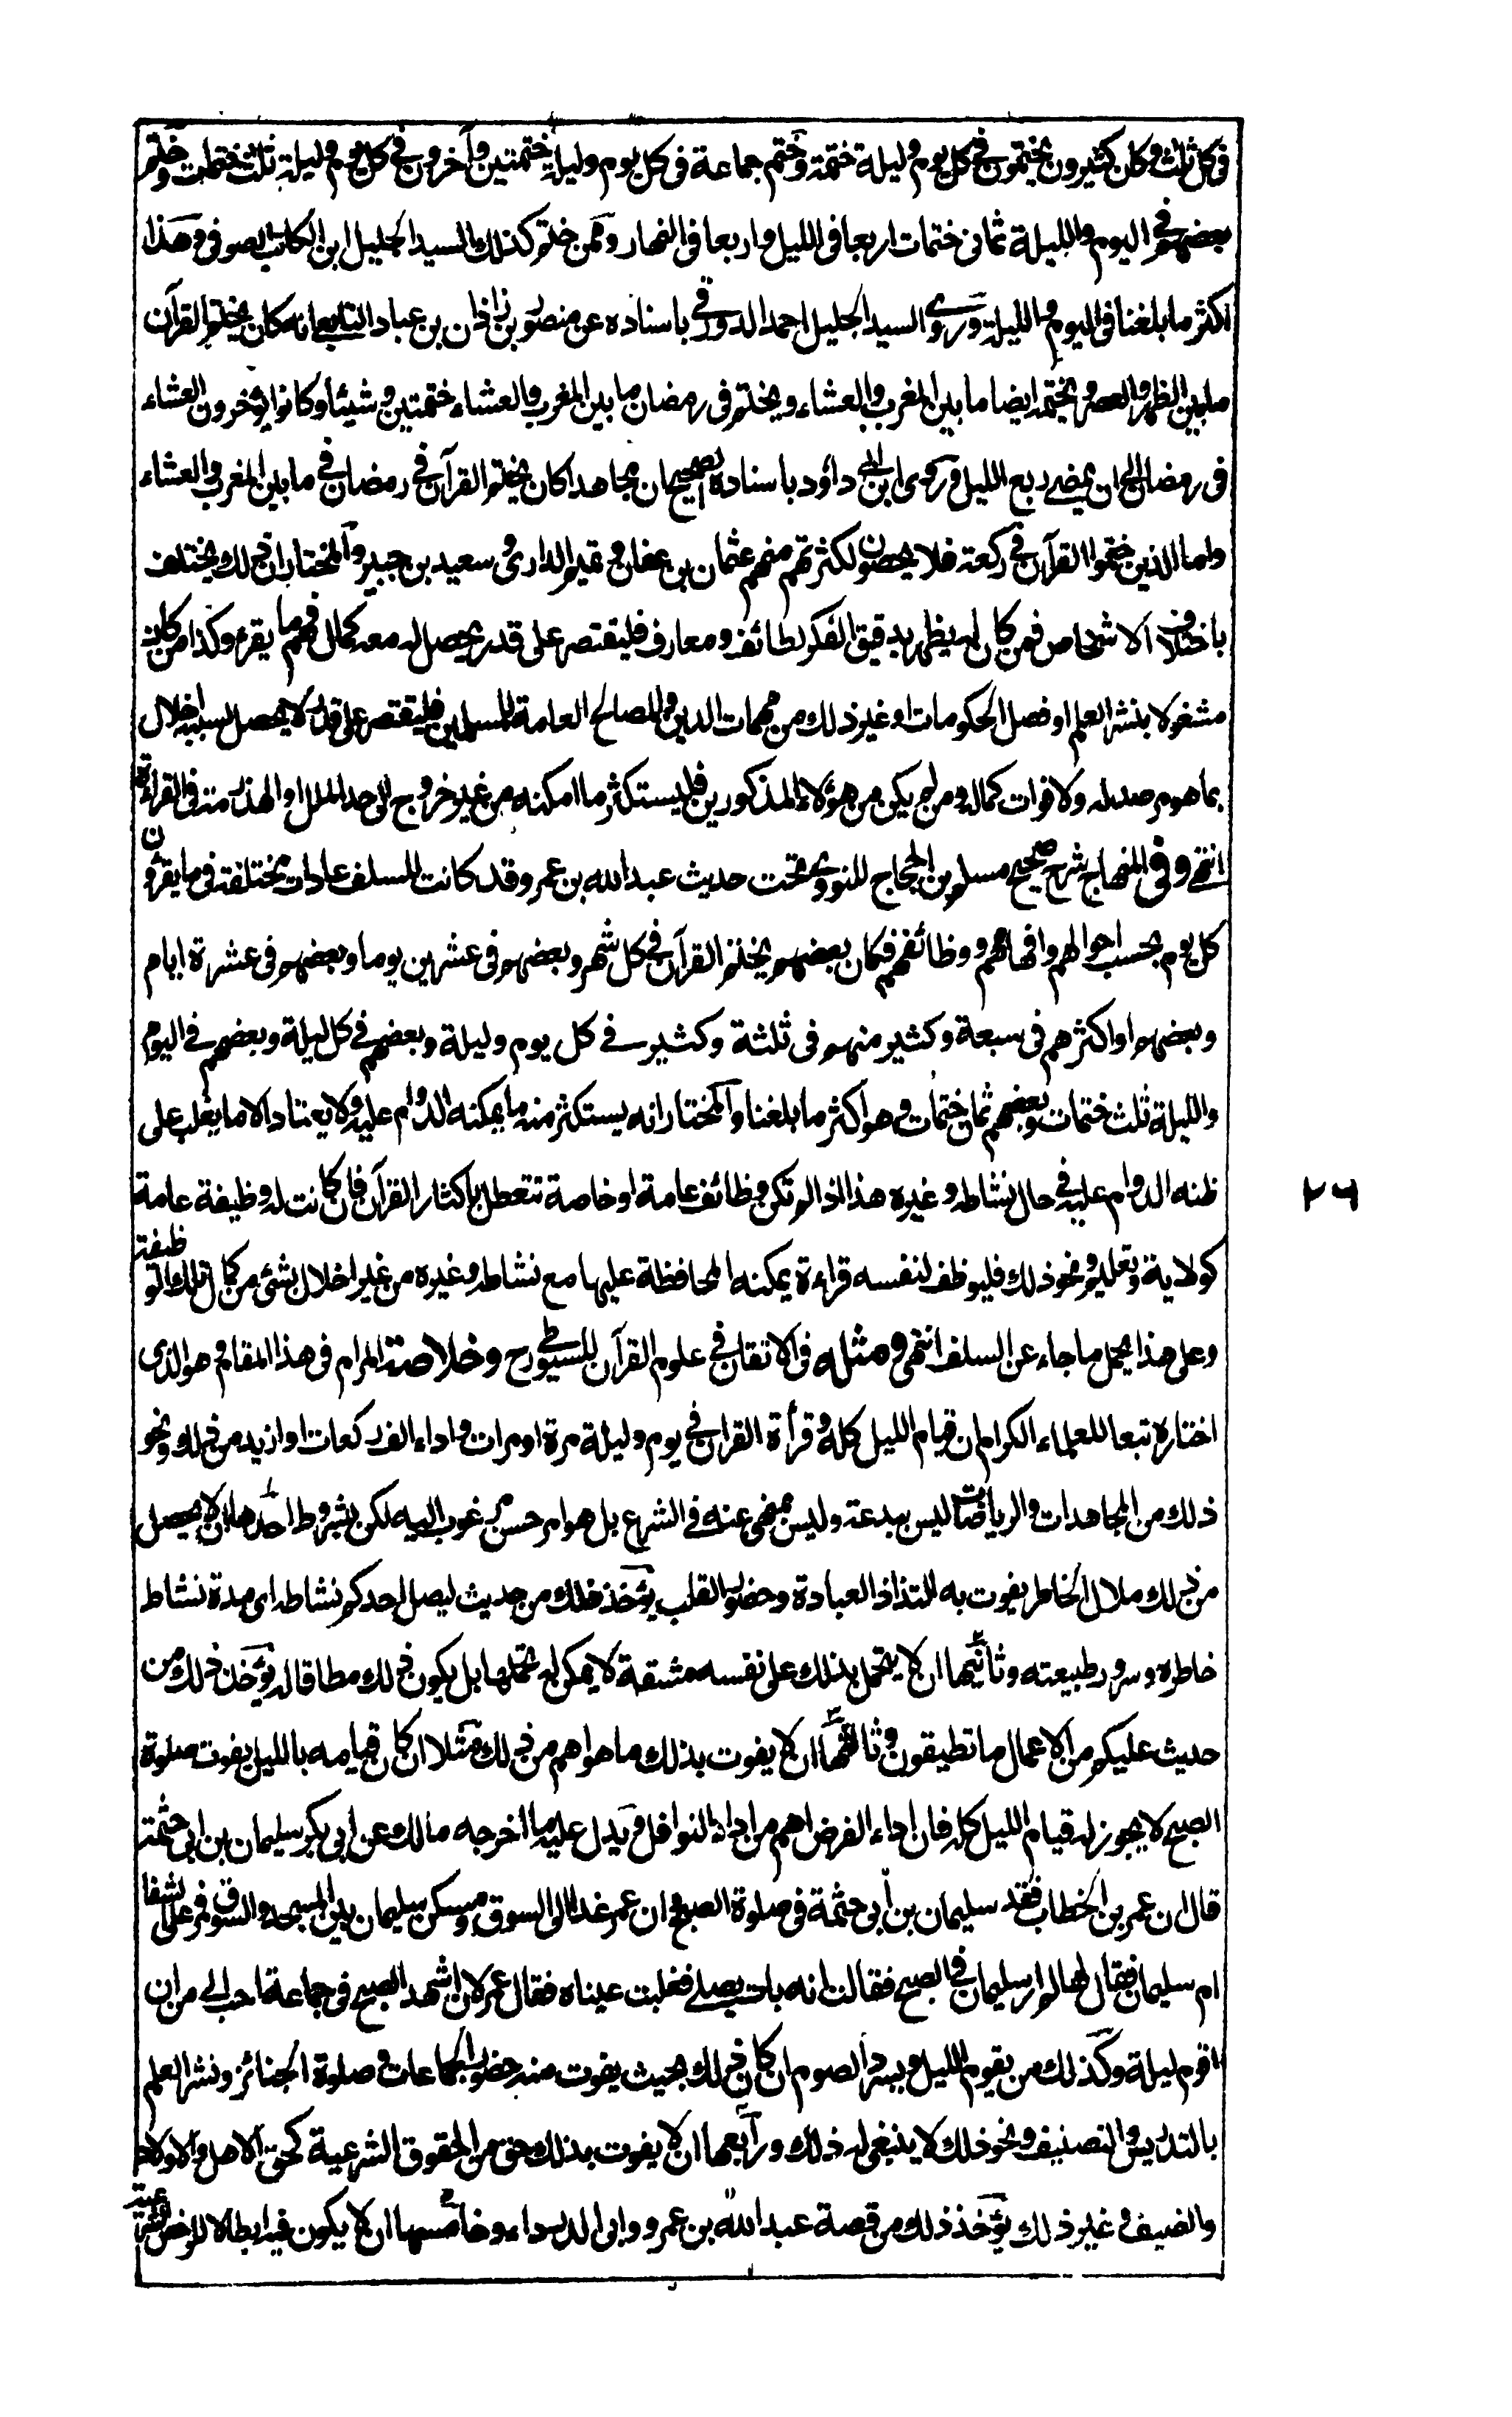 فى كل ثلث وكان كثيرون يختمون فى كل يوم وليلة ختمة وختم جماعة فى كل يوم وليلة ختمتين وآخرون فى كل يوم وليلة ثلث ختمات وختم
بعضهم فى اليوم والليلة ثمانى ختمات اربعا فى الليل واربعا فى النهار وممن ختم كذلك السيد الجليل ابن الكاتب الصوفى وهذا
اكثر ما بلغنا فى اليوم والليلة وروى السيد الجليل احمد الدورقى باسناده عن منصور بن زاذان بن عباد التابعى انه كان يختم القرآن
ما بين الظهر والعصر ويختمه ايضا ما بين المغرب والعشاء ويختم فى رمضان ما بين المغرب والعشاء ختمتين وشيئا وكانوا يؤخرون العشاء
فى رمضان الى ان يمضى ربع الليل وروى ابن ابى داؤد باسناده الصحيح ان مجاهدا كان يختم القرآن فى رمضان فى ما بين المغرب والعشاء
واما الذين ختموا القرآن فى ركعة فلا يحصون لكثرتهم منهم عثمان بن عفان وتميم الدارى وسعيد بن جبير والمختار ان ذلك يختلف
باختلاف الاشخاص فمن كان له يظهر بدقيق الفكر لطائف ومعارف فليقتصر على قدر يحصل له معه كمال فهم ما يقرء وكذا من كان
مشغولا بنشر العلم او فصل الحكومات او غير ذلك من مهمات الدين والمصالح العامة للمسلمين فليقتصر على قدر لا يحصل بسببه اخلال
بما هو مرصد له ولا فوات كماله ومن لم يكن من هؤلاء المذكورين فليستكثر ما امكنه من غير خروج الى حد الملل او الهذرمة فى القراءة
انتهى وفى المنهاج شرح صحيح مسلم بن الحجاج للنووى تحت حديث عبد الله بن عمرو قد كانت للسلف عادات مختلفة فى ما يقرؤن
كل يوم بحسب احوالهم وافهامهم ووظائفهم فكان بعضهم يختم القرآن فى كل شهر وبعضهم فى عشرين يوما وبعضهم فى عشرة ايام
وبعضهم او اكثرهم فى سبعة وكثير منهم فى ثلثة وكثير فى كل يوم وليلة وبعضهم فى كل ليلة وبعضهم فى اليوم
والليلة ثلث ختمات وبعضهم ثمان ختمات وهو اكثر ما بلغنا والمختار انه يستكثر منه ما يمكنه الدوام عليه ولا يعتاد الا ما يغلب على
ظنه الدوام عليه فى حال نشاطه وغيره هذا اذا لم تكن وظائف عامة او خاصة تتعطل باكثار القرآن فان كانت له وظيفة عامة
كولاية وتعليم ونحو ذلك فليوظف لنفسه قراءة يمكنه المحافظة عليها مع نشاطه وغيره من غير اخلال بشئ من كمال تلك الوظيفة
وعلى هذا يحمل ما جاء عن السلف انتهى ومثله فى الاتقان فى علوم القرآن للسيوطى رح وخلاصة المرام فى هذا المقام وهو الذى
اختاره تبعا للعلماء الكرام ان قيام الليل كله وقرأة القرآن فى يوم وليلة مرة او مرات واداء الف ركعات او ازيد من ذلك ونحو
ذلك من المجاهدات والرياضات ليس ببدعة وليس بمنهى عنه فى الشرع بل هو امر حسن مرغوب اليه لكن بشروط احدها ان لا يحصل
من ذلك ملال الخاطر يفوت به التذاذ العبادة وحضور القلب يؤخذ ذلك من حديث ليصل احدكم نشاطه اى مدة نشاط
خاطره وسرور طبيعته وثانيها ان لا يتحمل بذلك على نفسه مشقة لا يمكن له تحملها بل يكون ذلك مطاقا له يؤخذ ذلك من
حديث عليكم من الاعمال ما تطيقون وثالثها ان لا يفوت بذلك ما هو اهم من ذلك مثلا ان كان قيامه بالليل يفوت صلوة
الصبح لا يجوز له قيام الليل كله فان اداء الفرض اهم من اداء النوافل ويدل عليه ما اخرجه مالك عن ابى بكر سليمان بن ابى حثمة
قال ان عمر بن الخطاب فقد سليمان بن أبى حثمة فى صلوة الصبح وان عمر غدا الى السوق ومسكن سليمان بين المسجد والسوق فمر على الشفا
ام سليمان فقال لها لم ار سليمان فى الصبح فقالت انه بات يصلى فغلبت عيناه فقال عمر لان اشهد الصبح فى جماعة احب الى من ان
اقوم ليلة وكذلك من يقوم الليل ويسرد الصوم ان كان ذلك بحيث يفوت منه حضور الجماعات وصلوة الجنائز ونشر العلم
بالتدريس والتصنيف ونحو ذلك لا ينبغى له ذلك ورابعها ان لا يفوت بذلك حق من الحقوق الشرعية كحق الاهل والاولاد
والضيف وغير ذلك يؤخذ ذلك من قصة عبد الله بن عمرو وابى الدرداء وخامسها ان لا يكون فيه ابطال للرخص الشرعية
٢٦